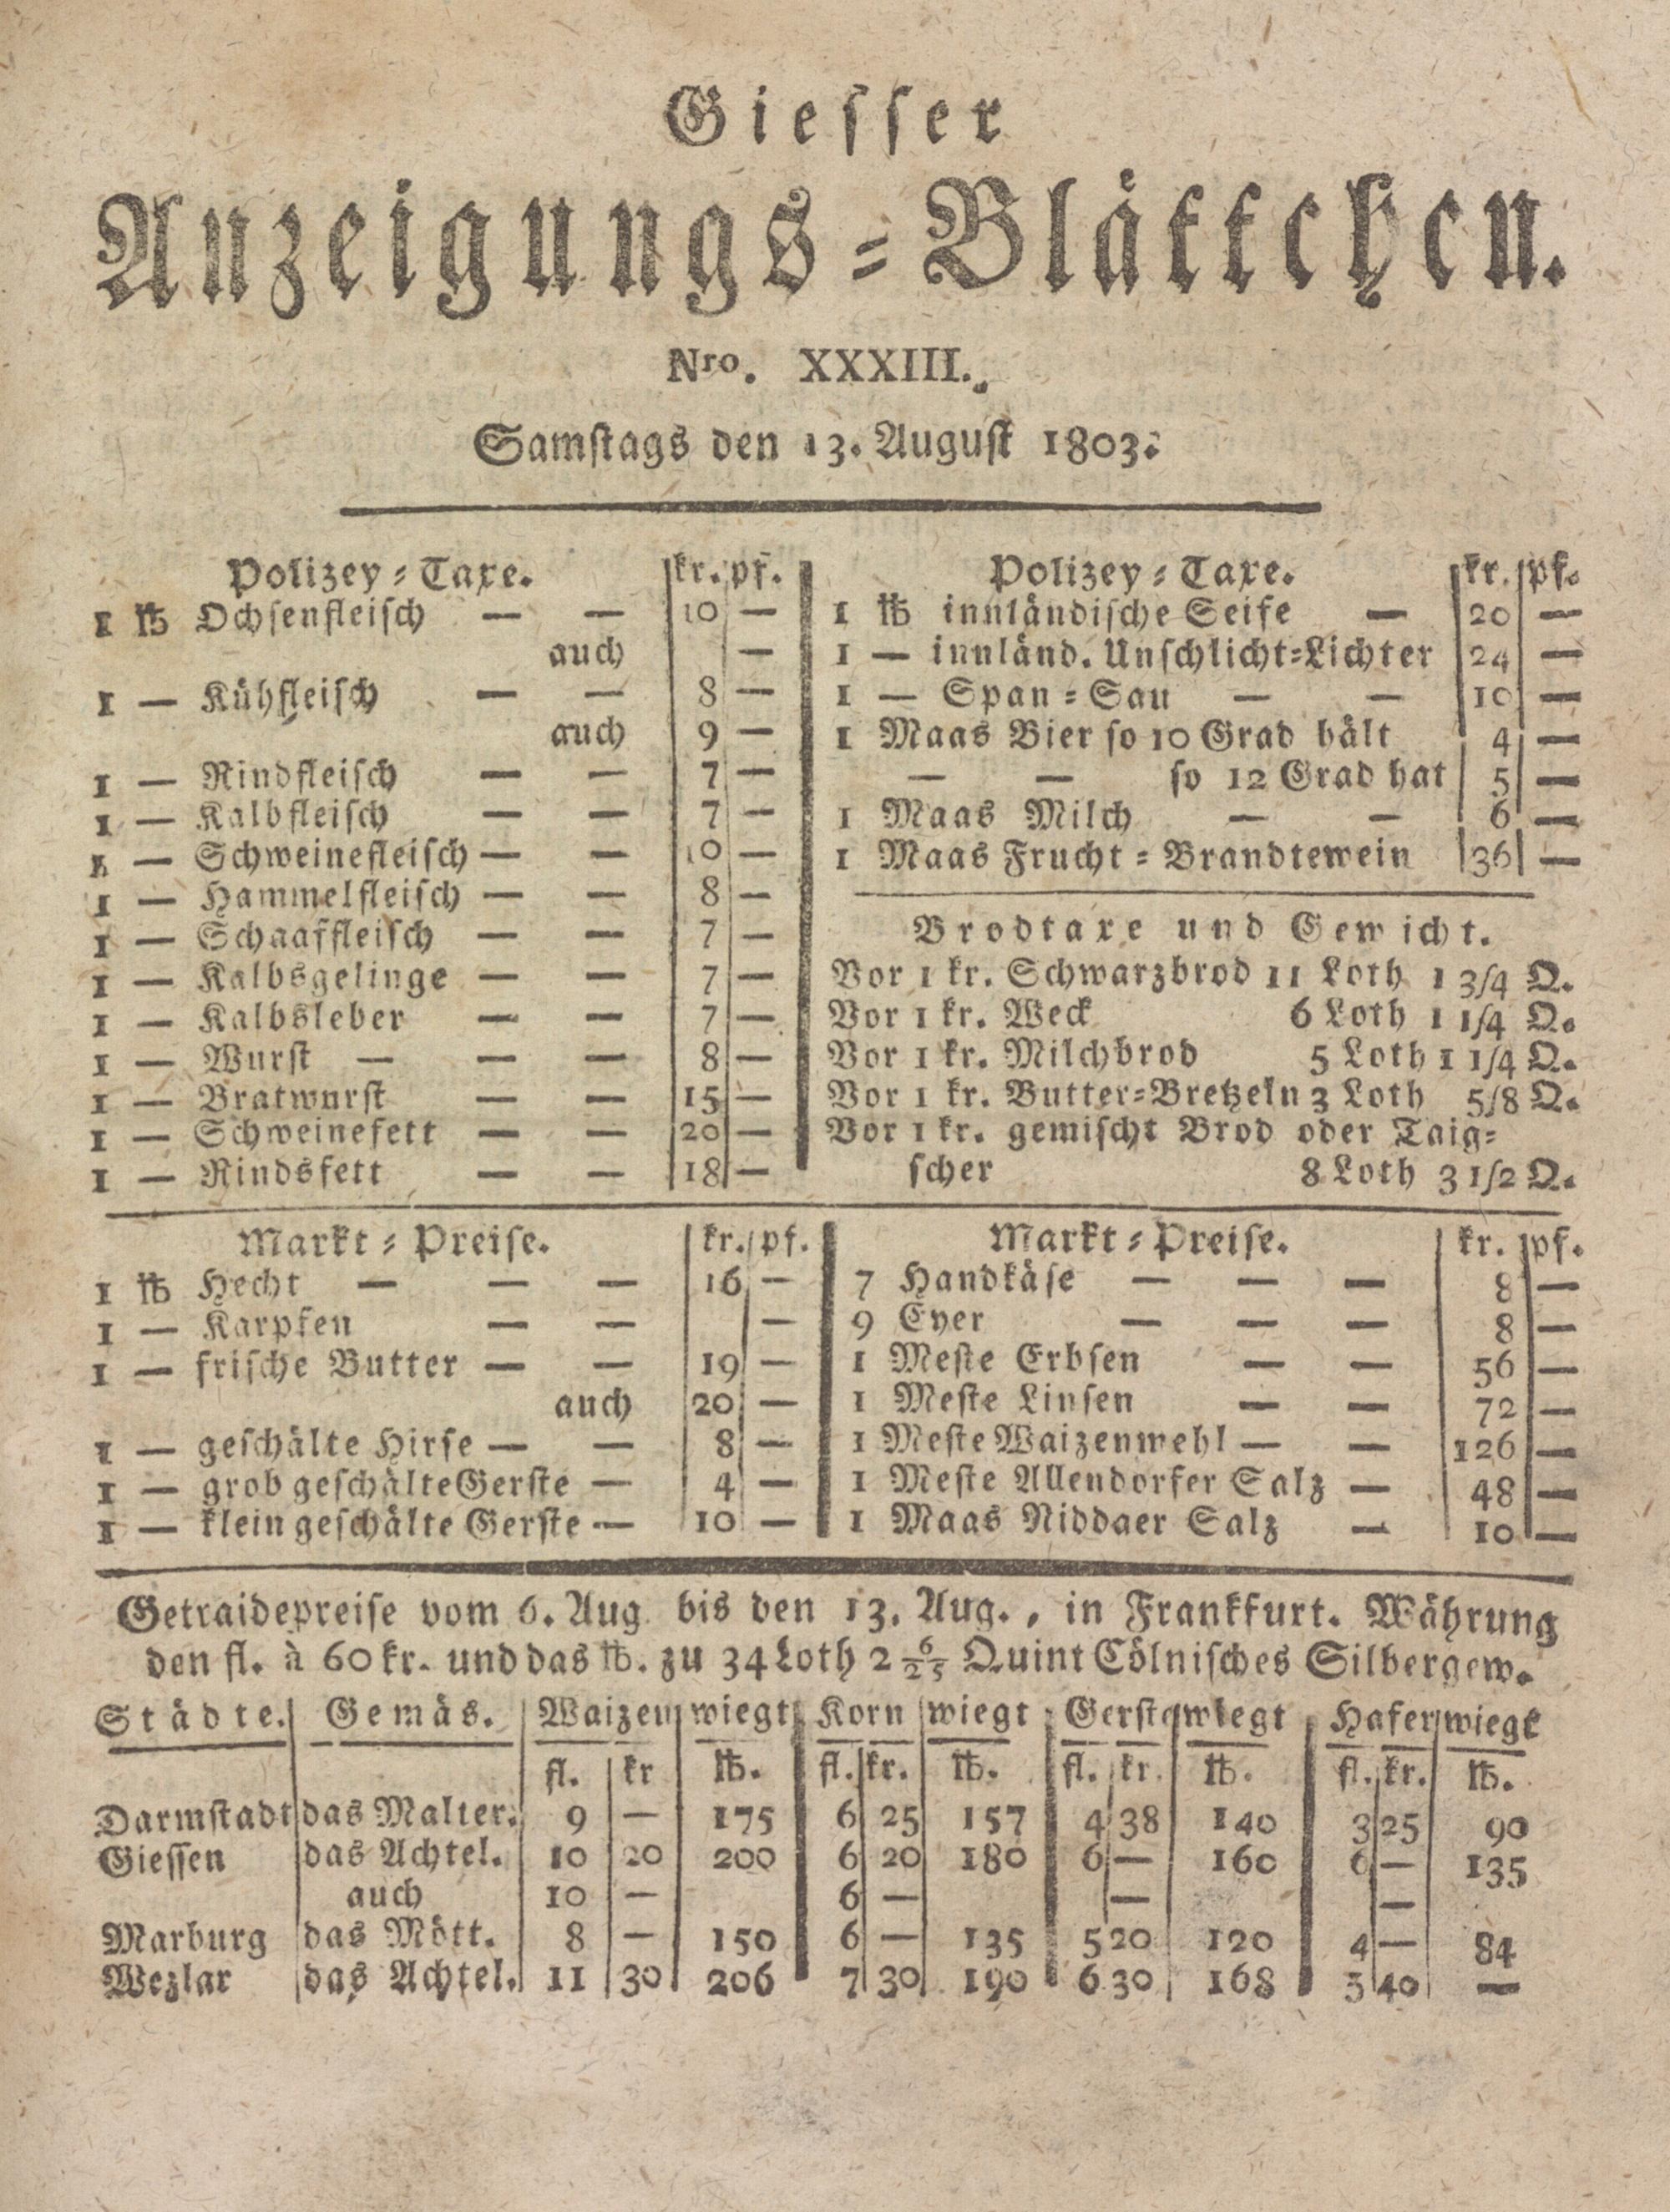 Giesser
Anzeigungs-Blättchen.
Nro. XXXIII.
Samstags den 13. August 1803.
Polizey-Taxe. kr. pf.
1 ℔ Ochsenfleisch — — 10 —
auch —
1 — Kühfleisch — — 8 —
auch 9 —
1 — Rindfleisch — — 7 —
1 — Kalbfleisch — — 7 —
1 — Schweinefleisch — — 10 —
1 — Hammelfleisch — — 8 —
1 — Schaaffleisch — — 7 —
1 — Kalbsgelinge — — 7 —
1 — Kalbsleber — — 7 —
1 — Wurst — — — 8 —
1 — Bratwurst — — 15 —
1 — Schweinefett — — 20 —
1 — Rindsfett — — 18 —
Polizey-Taxe. kr. pf.
1 ℔ innländische Seife — 20 —
1 — innländ. Unschlicht-Lichter 24 —
1 — Span-Sau — — 10 —
1 Maas Bier so 10 Grad hält 4 —
— — so 12 Grad hat 5 —
1 Maas Milch — — 6 —
1 Maas Frucht-Brandtewein 36 —
Brodtaxe und Gewicht.
Vor 1 kr. Schwarzbrod 11 Loth 1 3/4 Q.
Vor 1 kr. Weck 6 Loth 1 1/4 Q.
Vor 1 kr. Milchbrod 5 Loth 1 1/4 Q.
Vor 1 kr. Butter-Bretzeln 3 Loth 5/8 Q.
Vor 1 kr. gemischt Brod oder Taig-
scher 8 Loth 3 1/2 Q.
Markt-Preise. kr. pf.
1 ℔ Hecht — — — 16 —
1 — Karpfen — — —
1 — frische Butter — — 19 —
auch 20 —
1 — geschälte Hirse — — 8 —
1 — grob geschälte Gerste — 4 —
1 — klein geschälte Gerste — 10 —
Markt-Preise. kr. pf.
7 Handkäse — — — 8 —
9 Eyer — — — 8 —
1 Meste Erbsen — — 56 —
1 Meste Linsen — — 72 —
1 Meste Waizenwehl — — 126 —
1 Meste Allendorfer Salz — 48 —
1 Maas Niddaer Salz — 10 —
Getraidepreise vom 6. Aug bis den 13. Aug., in Frankfurt. Währung
den fl. à 60 kr. und das ℔. zu 34 Loth 2 6/25 Quint Cölnisches Silbergew.
Städte. Gemäs. Waizen wiegt Korn wiegt Gerste wiegt Hafer wiegt
fl. kr ℔. fl. kr. ℔. fl. kr. ℔. fl. kr. ℔.
Darmstadt das Malter. 9 — 175 6 25 157 4 38 140 3 25 90
Giessen das Achtel. 10 20 200 6 20 180 6 — 160 6 — 135
auch 10 — 6 — — —
Marburg das Mött. 8 — 150 6 — 135 5 20 120 4 — 84
Wezlar das Achtel. 11 30 206 7 30 190 6 30 168 5 40 —